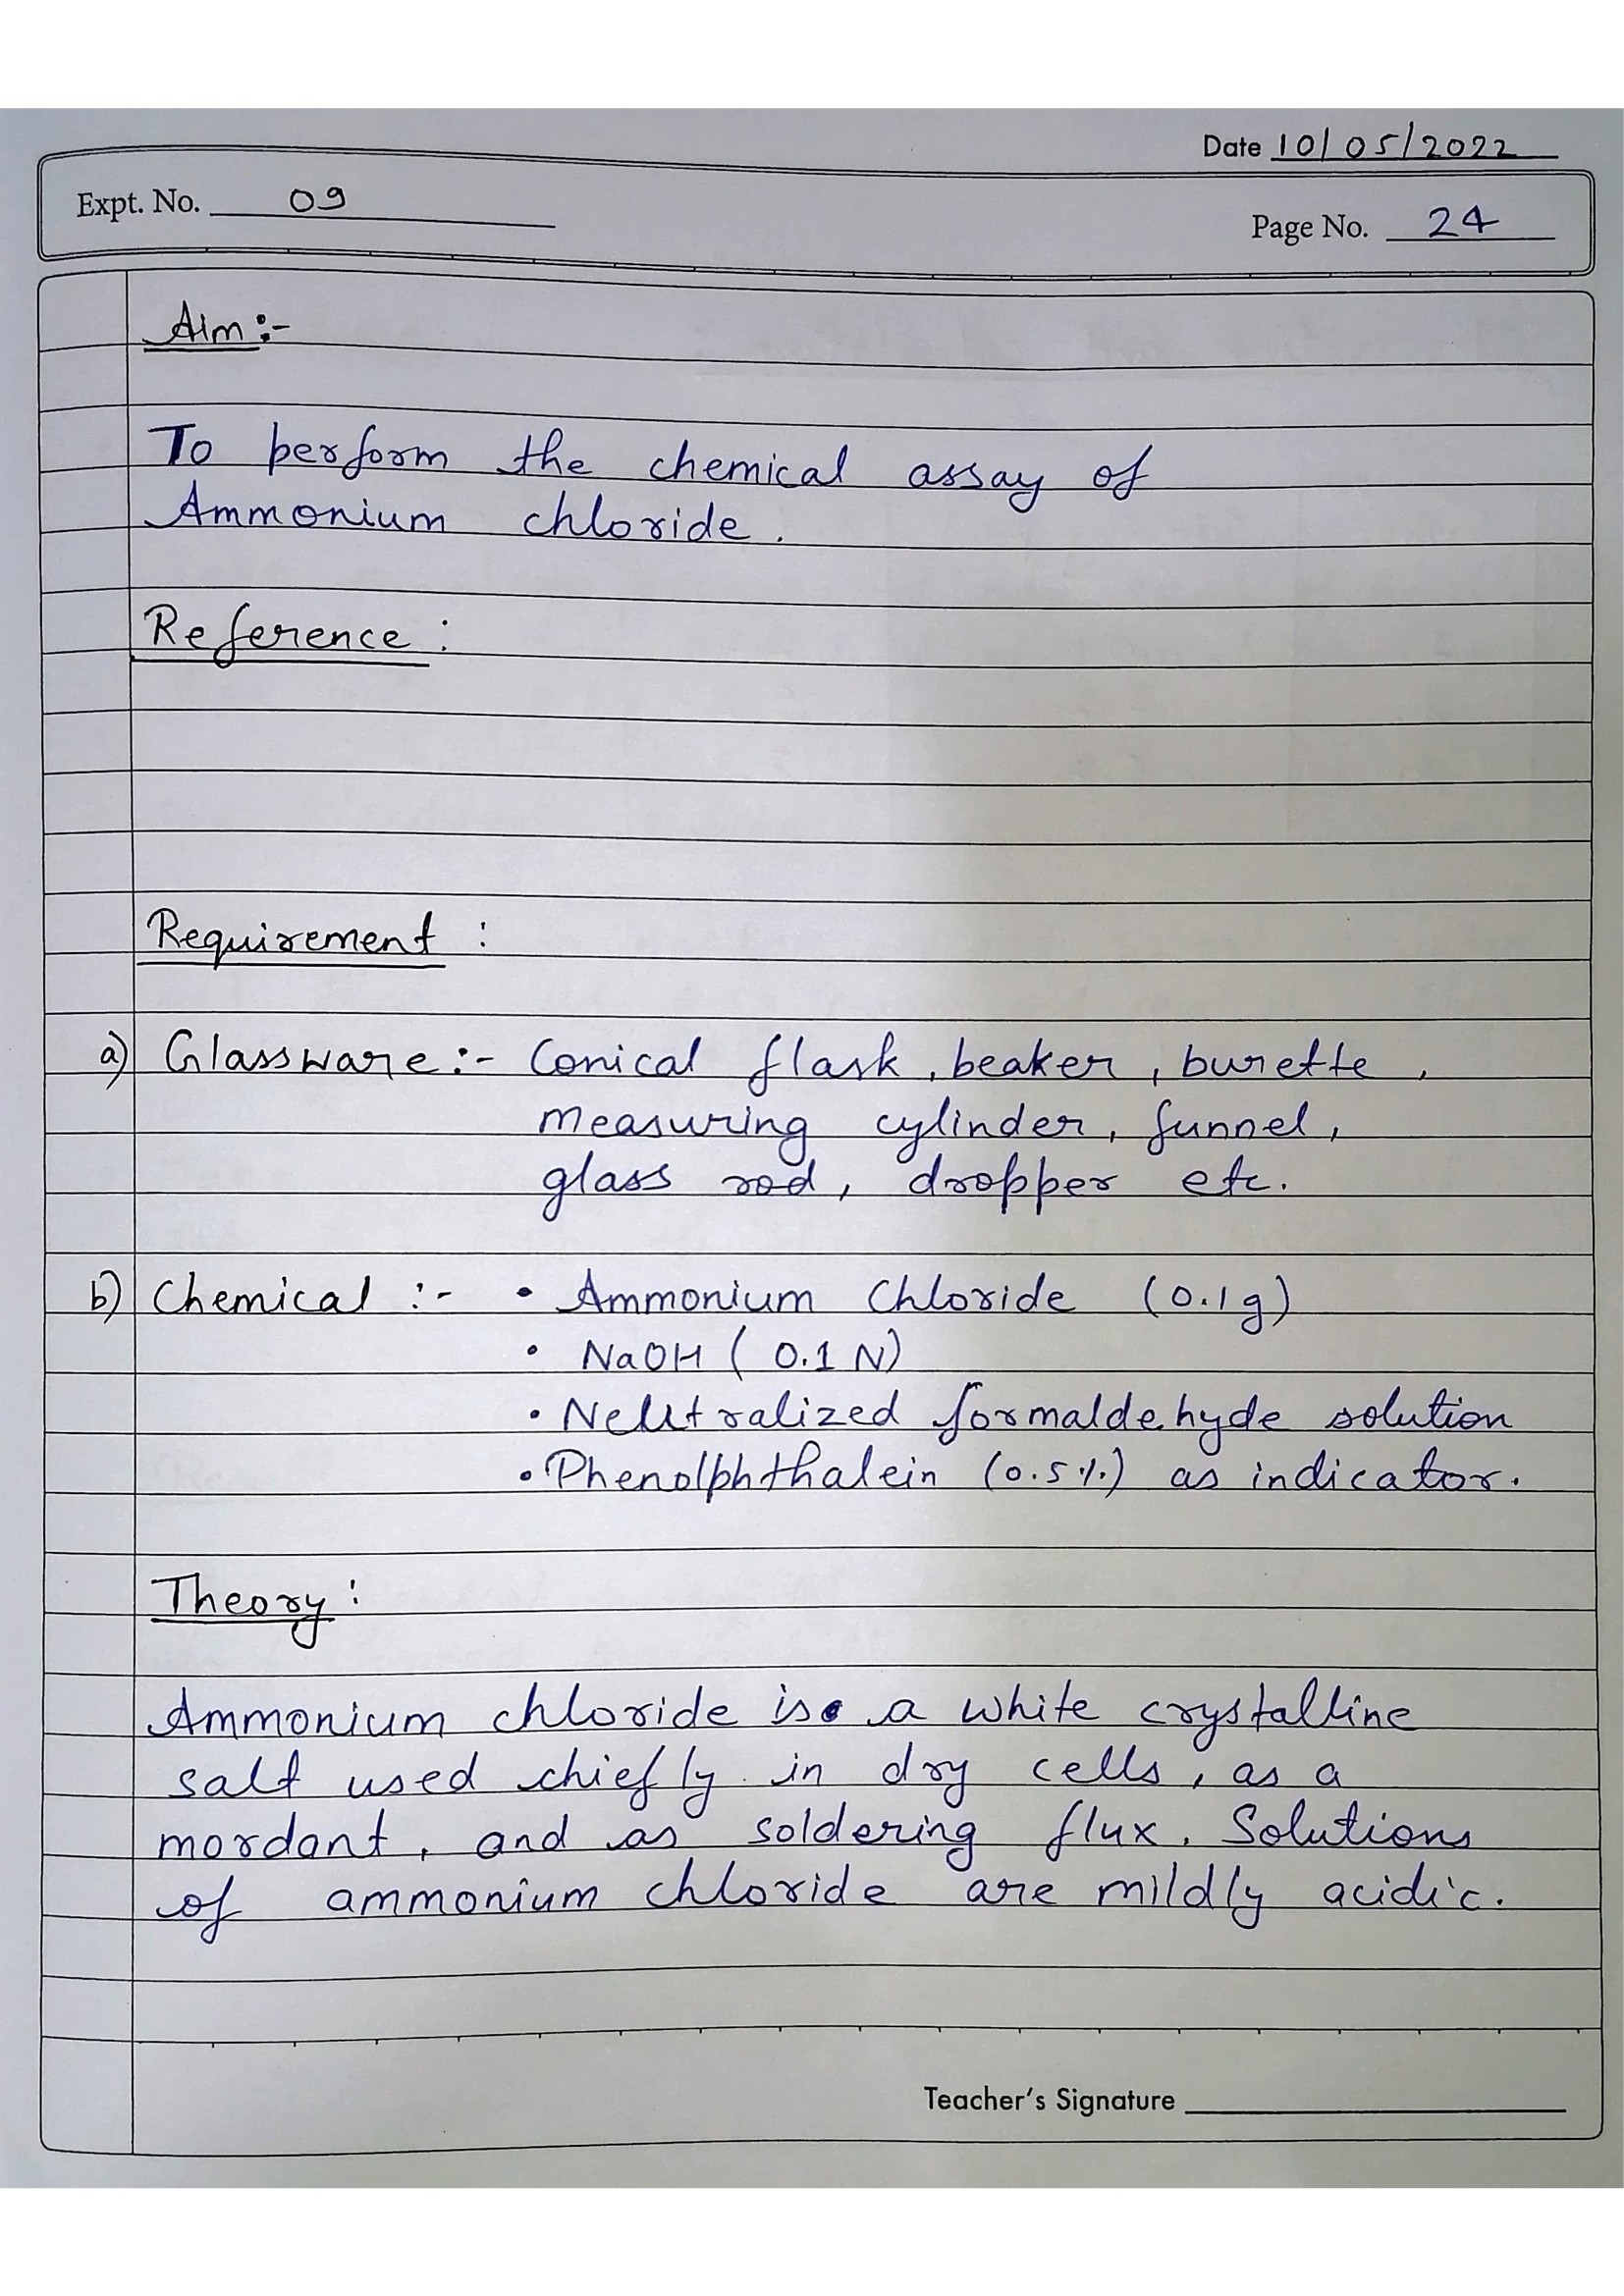 Date 10/05/2022
Expt. No. 09
Page No. 24
Aim :-
To perform the chemical assay of
Ammonium chloride.
Reference :
Requirement :
a) Glassware :- Conical flask, beaker, burette,
measuring cylinder, funnel,
glass rod, dropper etc.
b) Chemical :- • Ammonium Chloride (0.1g)
• NaOH ( 0.1 N)
• Neutralized formaldehyde solution
• Phenolphthalein (0.5%) as indicator.
Theory :
Ammonium chloride is a white crystalline
salt used chiefly in dry cells, as a
mordant, and as soldering flux. Solutions
of ammonium chloride are mildly acidic.
Teacher's Signature